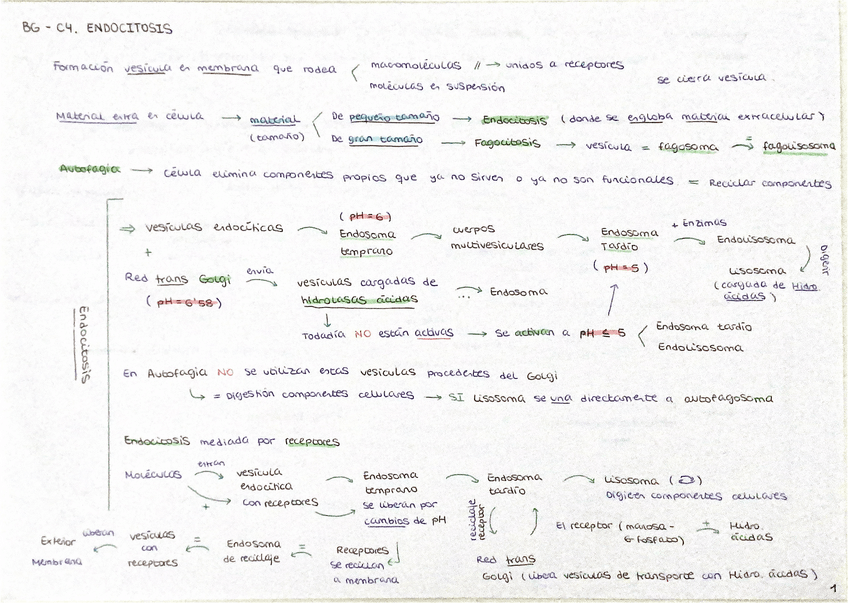 BG - C4. ENDOCITOSIS
Formación vesícula en membrana que rodea
macromoléculas // → unidos a receptores
moléculas en suspensión
se cierra vesícula.
Material entra en célula → material (tamaño)
De pequeño tamaño → Endocitosis (donde se engloba material extracelular)
De gran tamaño → Fagocitosis → vesícula = fagosoma → = fagolisosoma
Autofagia → Célula elimina componentes propios que ya no sirven o ya no son funcionales = Reciclar componentes
Endocitosis
⇒ vesículas endocíticas → (pH=6) Endosoma temprano → cuerpos multivesiculares → Endosoma Tardío (pH=5) → + Enzimas Endolisosoma
Digerir
Lisosoma (cargada de Hidro. ácidas)
+
Red trans Golgi (pH=6'58) envía → vesículas cargadas de hidrolasas ácidas ... → Endosoma
↓
Todadía NO están activas → Se activan a pH ≤ 5
Endosoma tardío
Endolisosoma
En Autofagia NO se utilizan estas vesículas procedentes del Golgi
↳ = Digestión componentes celulares → SI Lisosoma se una directamente a autofagosoma
Endocitosis mediada por receptores
Moléculas entran → vesícula endocítica → Endosoma temprano → Endosoma tardío → Lisosoma
Digieren componentes celulares
+ con receptores → se liberan por cambios de pH
reciclaje receptor
El receptor (manosa-6-fosfato) + → Hidro. ácidas
Red trans
Golgi (libera vesículas de transporte con Hidro. ácidas)
Receptores se reciclan a membrana
= Endosoma de reciclaje
= vesículas con receptores
liberan
Exterior Membrana
1